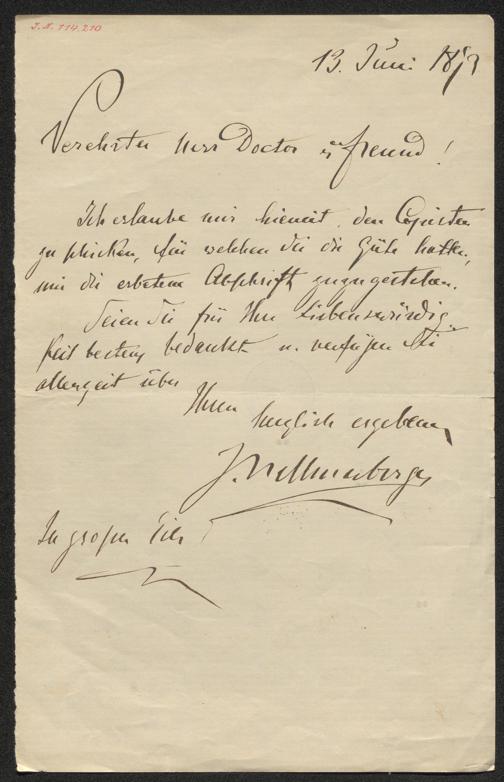 I.N. 114.210
13. Juni 1873
Verehrter Herr Doctor u. Freund!
Ich erlaube mir hiemit, den Copisten
zu schicken, für welchen Sie die Güte hatten,
mir die erbetene Abschrift zuzugestehen.
Seien Sie für Ihre Liebenswürdig-
keit bestens bedankt u. verfügen Sie
allezeit über
Ihren
herzlich ergebenen
In großer Eile